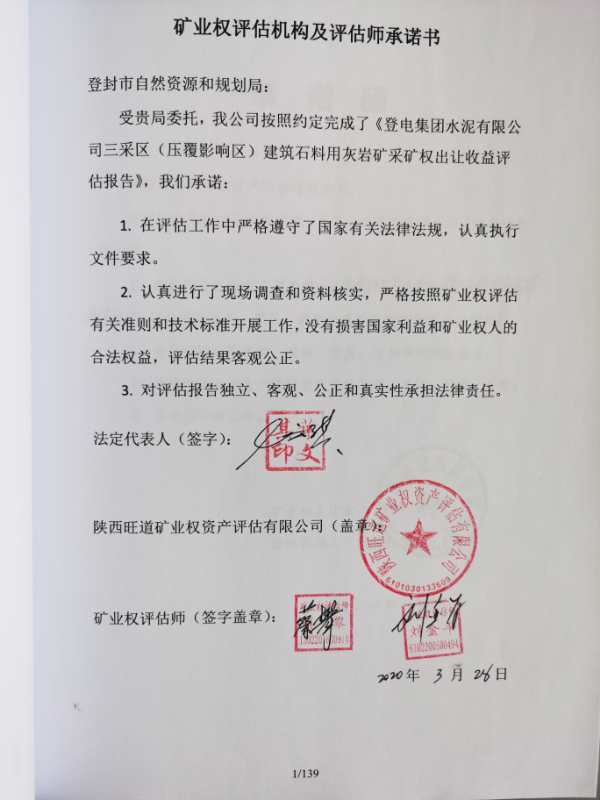 矿业权评估机构及评估师承诺书
登封市自然资源和规划局：
受贵局委托，我公司按照约定完成了《登电集团水泥有限公
司三采区（压覆影响区）建筑石料用灰岩矿采矿权出让收益评
估报告》，我们承诺：
1. 在评估工作中严格遵守了国家有关法律法规，认真执行
文件要求。
2. 认真进行了现场调查和资料核实，严格按照矿业权评估
有关准则和技术标准开展工作，没有损害国家利益和矿业权人的
合法权益，评估结果客观公正。
3. 对评估报告独立、客观、公正和真实性承担法律责任。
法定代表人（签字）：
印文
陕西旺道矿业权资产评估有限公司（盖章）：
陕西旺道矿业权资产评估有限公司
6101030133509
矿业权评估师（签字盖章）：
6102200500494
2020年 3月 26日
1/139